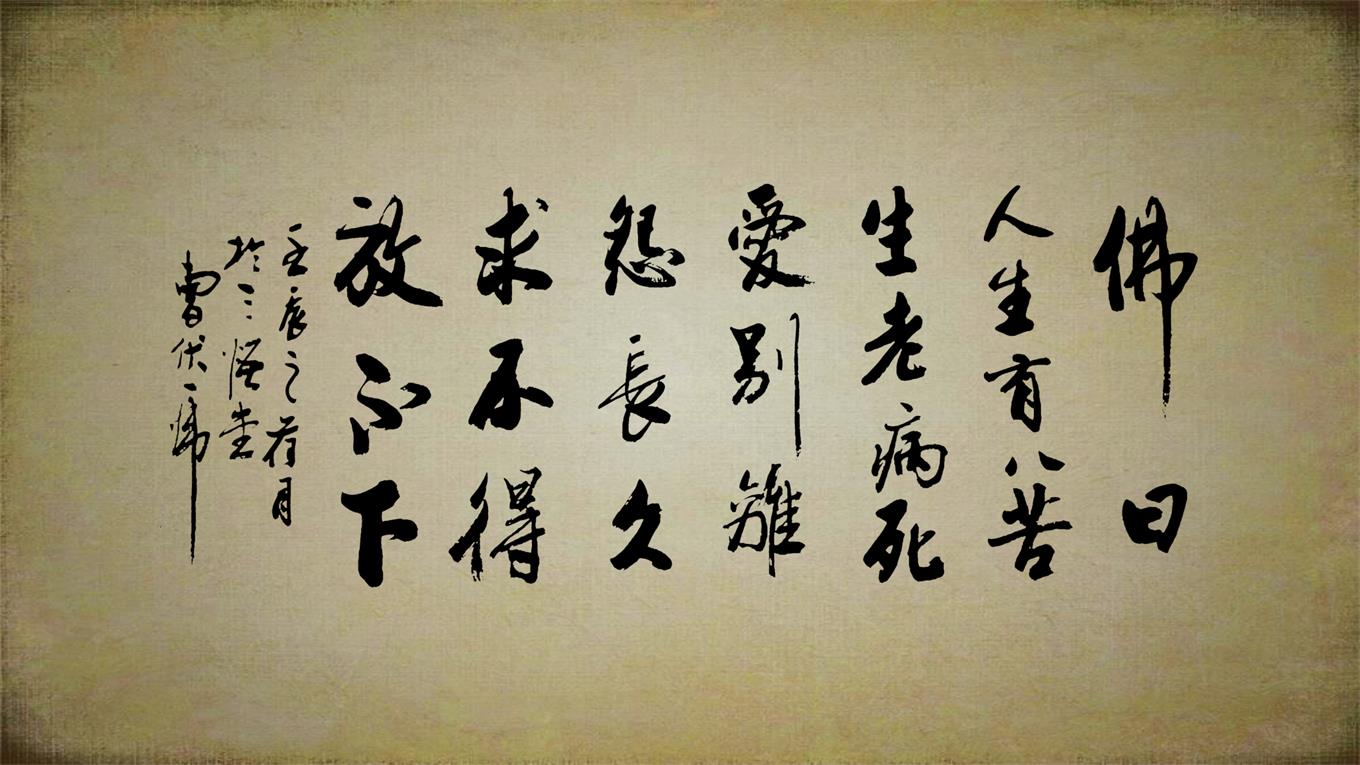 佛曰
人生有八苦
生老病死
愛别離
怨長久
求不得
放不下
壬辰之荷月
於三悟堂
曹伏一